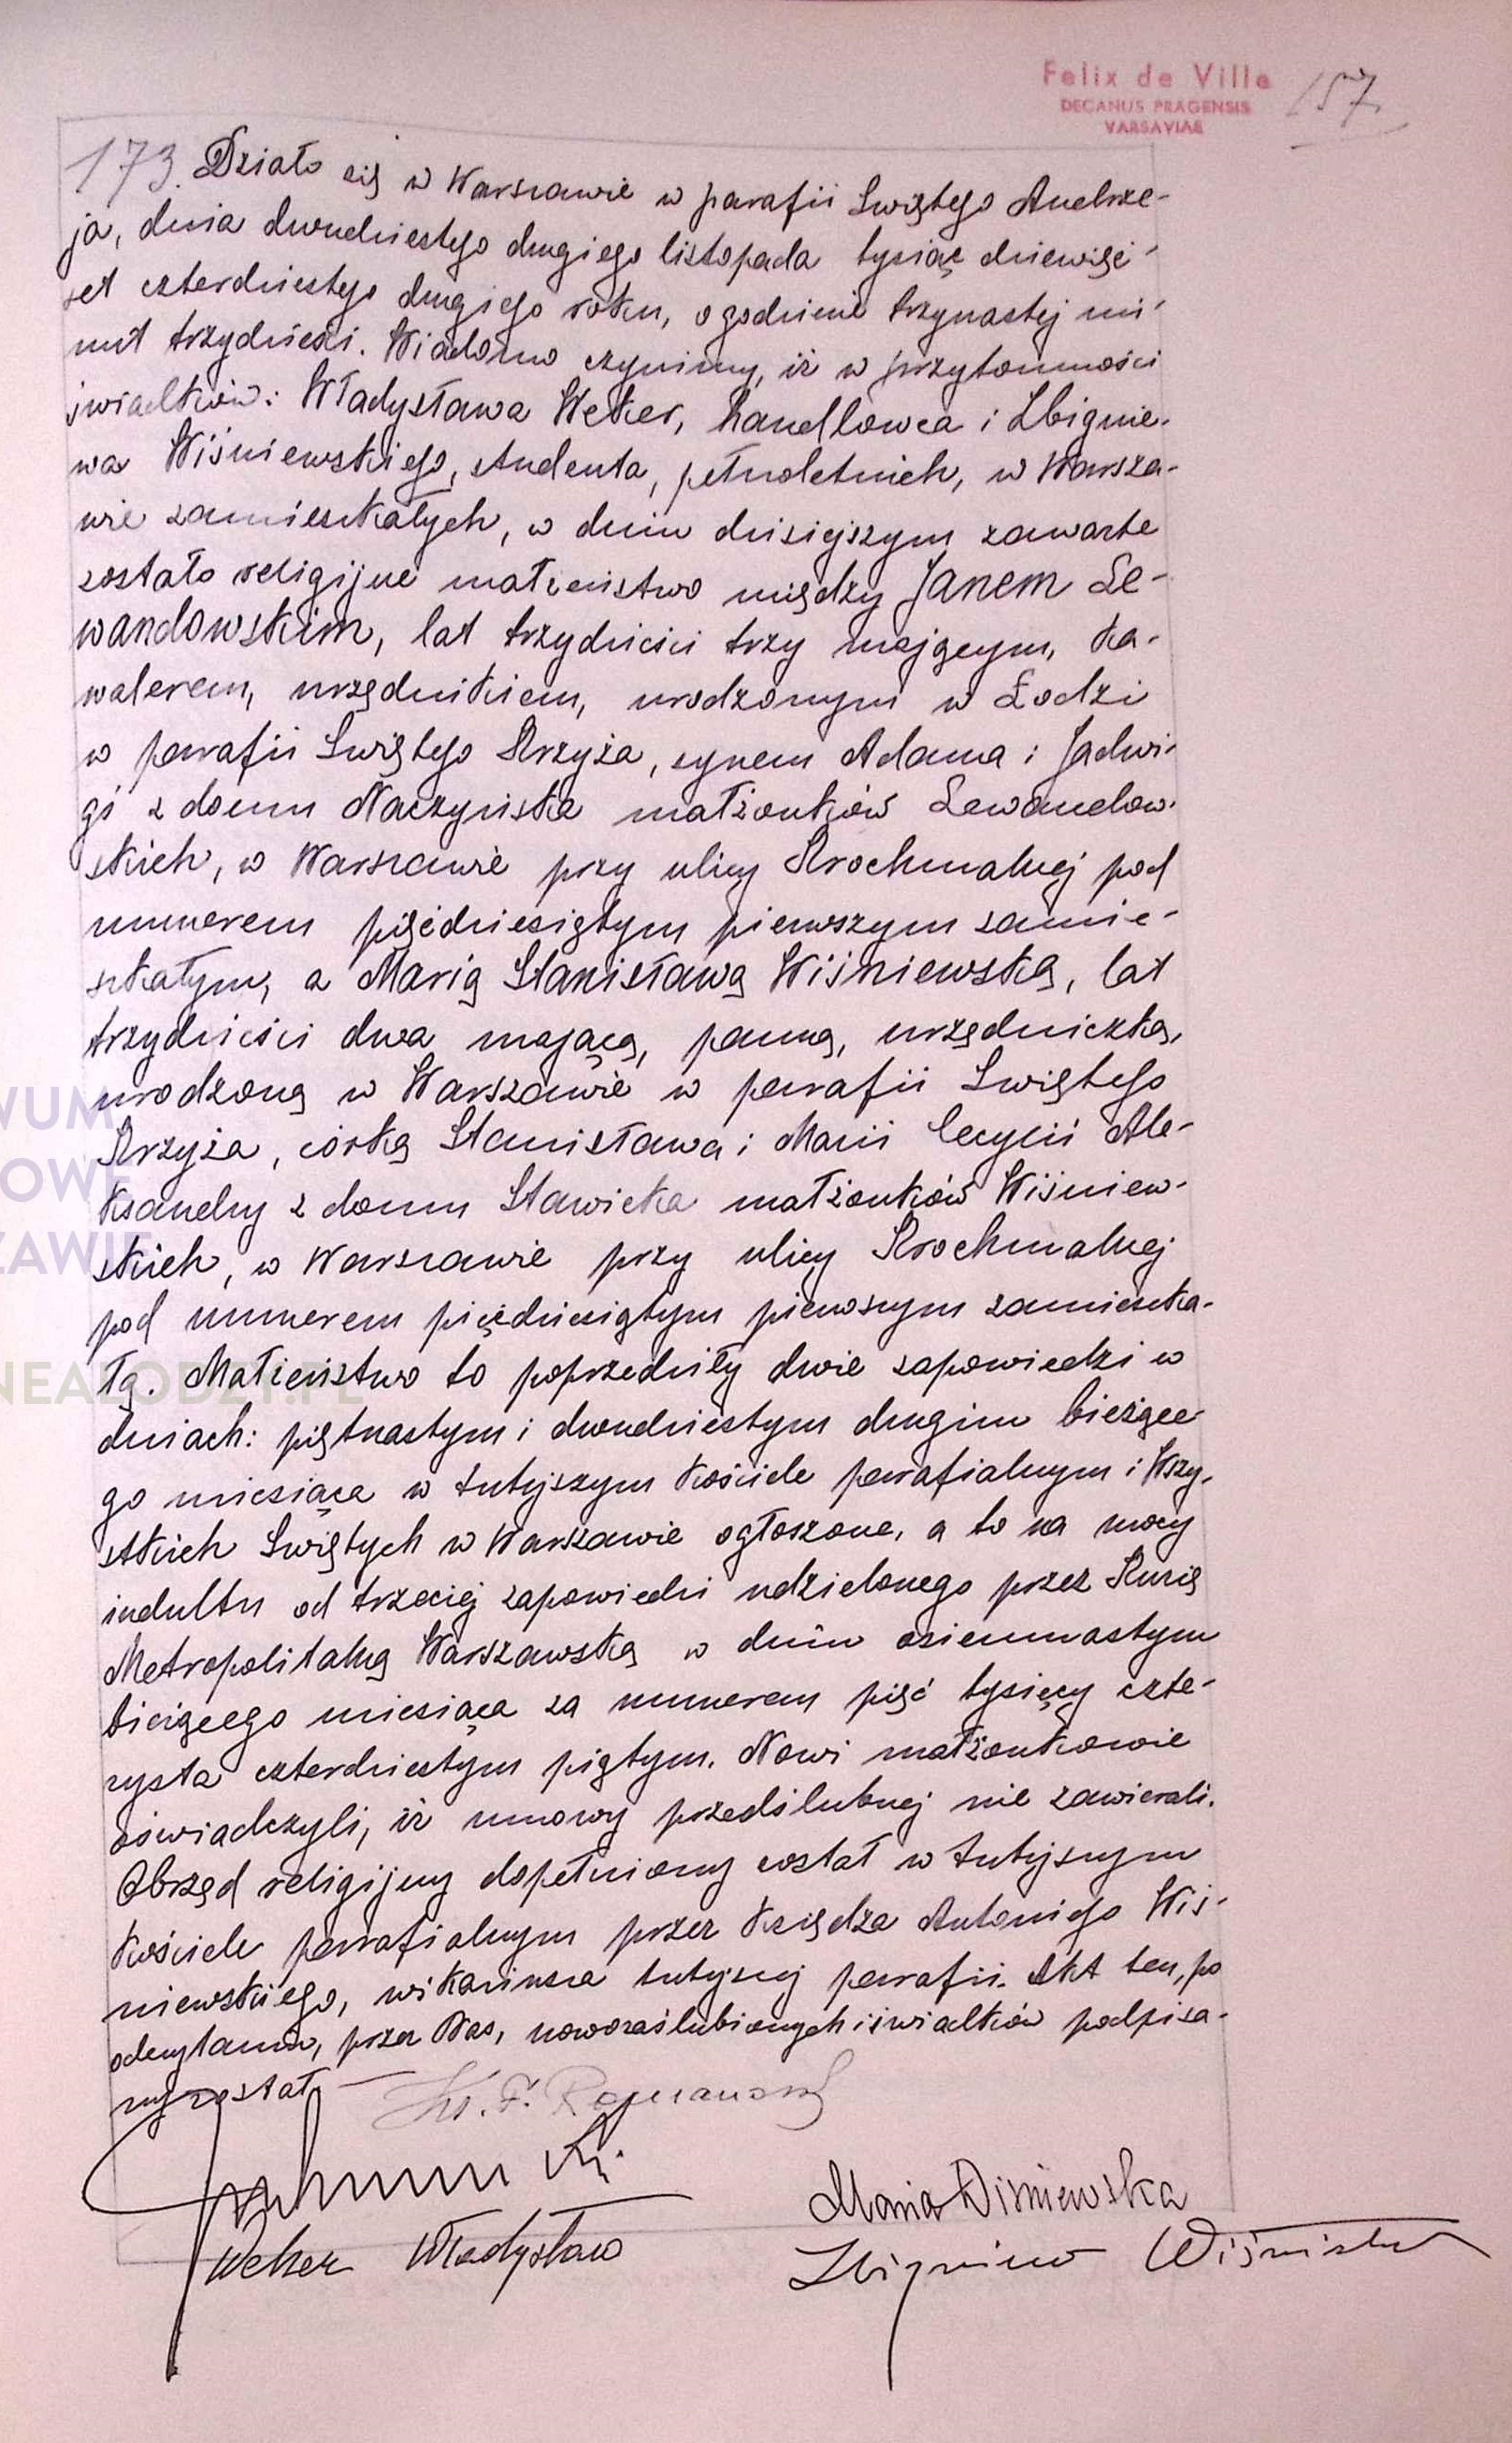 Felix de Ville
DECANUS PRAGENSIS
VARSAVIAE
157
173. Działo się w Warszawie w parafii Swiętego Andrze-
ja, dnia dwudziestego drugiego listopada tysiąc dziewięć-
set czterdziestego drugiego roku, o godzinie trzynastej mi-
nut trzydzieści. Wiadomo czynimy, iż w przytomności
świadków: Władysława Weker, handlowca i Zbignie-
wa Wiśniewskiego, studenta, pełnoletnich, w Warsza-
wie zamieszkałych, w dniu dzisiejszym zawarte
zostało religijne małżeństwo między Janem Le-
wandowskim, lat trzydzieści trzy mającym, ka-
walerem, urzędnikiem, urodzonym w Łodzi
w parafii Swiętego Krzyża, synem Adama i Jadwi-
gi z domu Naczyńska małżonków Lewandow-
skich, w Warszawie przy ulicy Krochmalnej pod
numerem pięćdziesiątym pierwszym zamie-
szkałym, a Marią Stanisławą Wiśniewską, lat
trzydzieści dwa mającą, panną, urzędniczką,
urodzoną w Warszawie w parafii Swiętego
Krzyża, córką Stanisława i Marii Cecylii Ale-
ksandry z domu Sławicka małżonków Wiśniew-
skich, w Warszawie przy ulicy Krochmalnej
pod numerem pięćdziesiątym pierwszym zamieszka-
łą. Małżeństwo to poprzedziły dwie zapowiedzi w
dniach: piętnastym i dwudziestym drugim bieżące-
go miesiąca w tutejszym kościele parafialnym i Wszy-
stkich Swiętych w Warszawie ogłoszone, a to na mocy
indultu od trzeciej zapowiedzi udzielonego przez Kurię
Metropolitalną Warszawską w dniu osiemnastym
bieżącego miesiąca za numerem pięć tysięcy czte-
rysta czterdziestym piątym. Nowi małżonkowie
oświadczyli, iż umowy przedślubnej nie zawierali.
Obrzęd religijny dopełniony został w tutejszym
kościele parafialnym przez księdza Antoniego Wiś-
niewskiego, wikariusza tutejszej parafii. Akt ten, po
odczytaniu, przez Nas, nowozaślubionych i świadków podpisa-
ny został
Ks. F.
Maria Wiśniewska
Weker Władysław
Zbigniew Wiśniewski